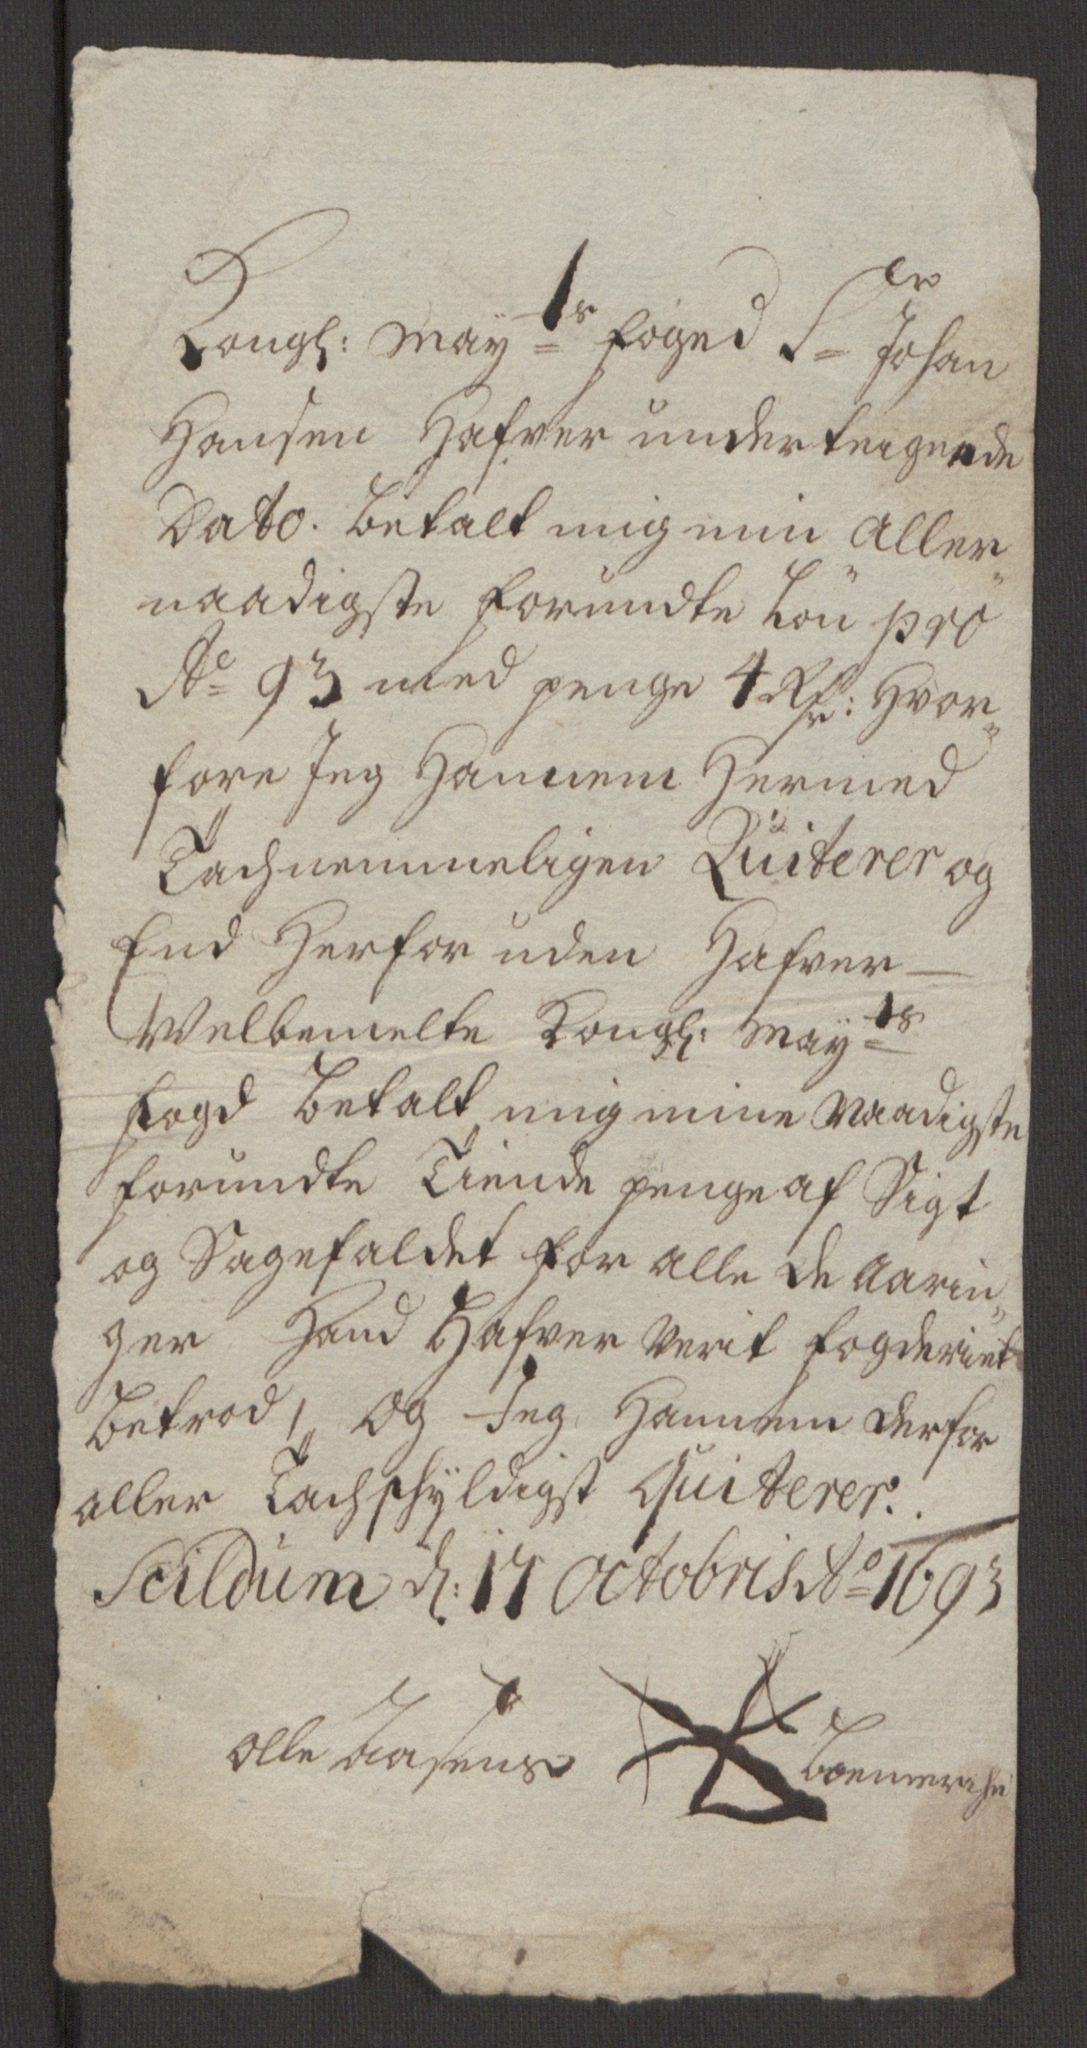 Kongl: May:ts foged Sr Johan
Hansen Hafver underteignede
Dato. Betalt mig min Aller
naadigste forundte Lön pro
Ao 93 med penge 4 Rdr: Hvor
fore Jeg Hannem Hermed
Tachnemmeligen Quiterer og
End Herforuden Hafver
Welbemelte Kongl: May:ts
fogd betalt mig mine Naadigste
forundte Tiende penge af Sigt
og Sagefaldet for alle de Aarin
ger Hand Hafver Verit fogderiet
betrod, Og Jeg Hannem derfor
aller Tachschyldigst Quiterer.
Scildum d: 17 Octobris Ao 1693
Olle Aasens Boemerche